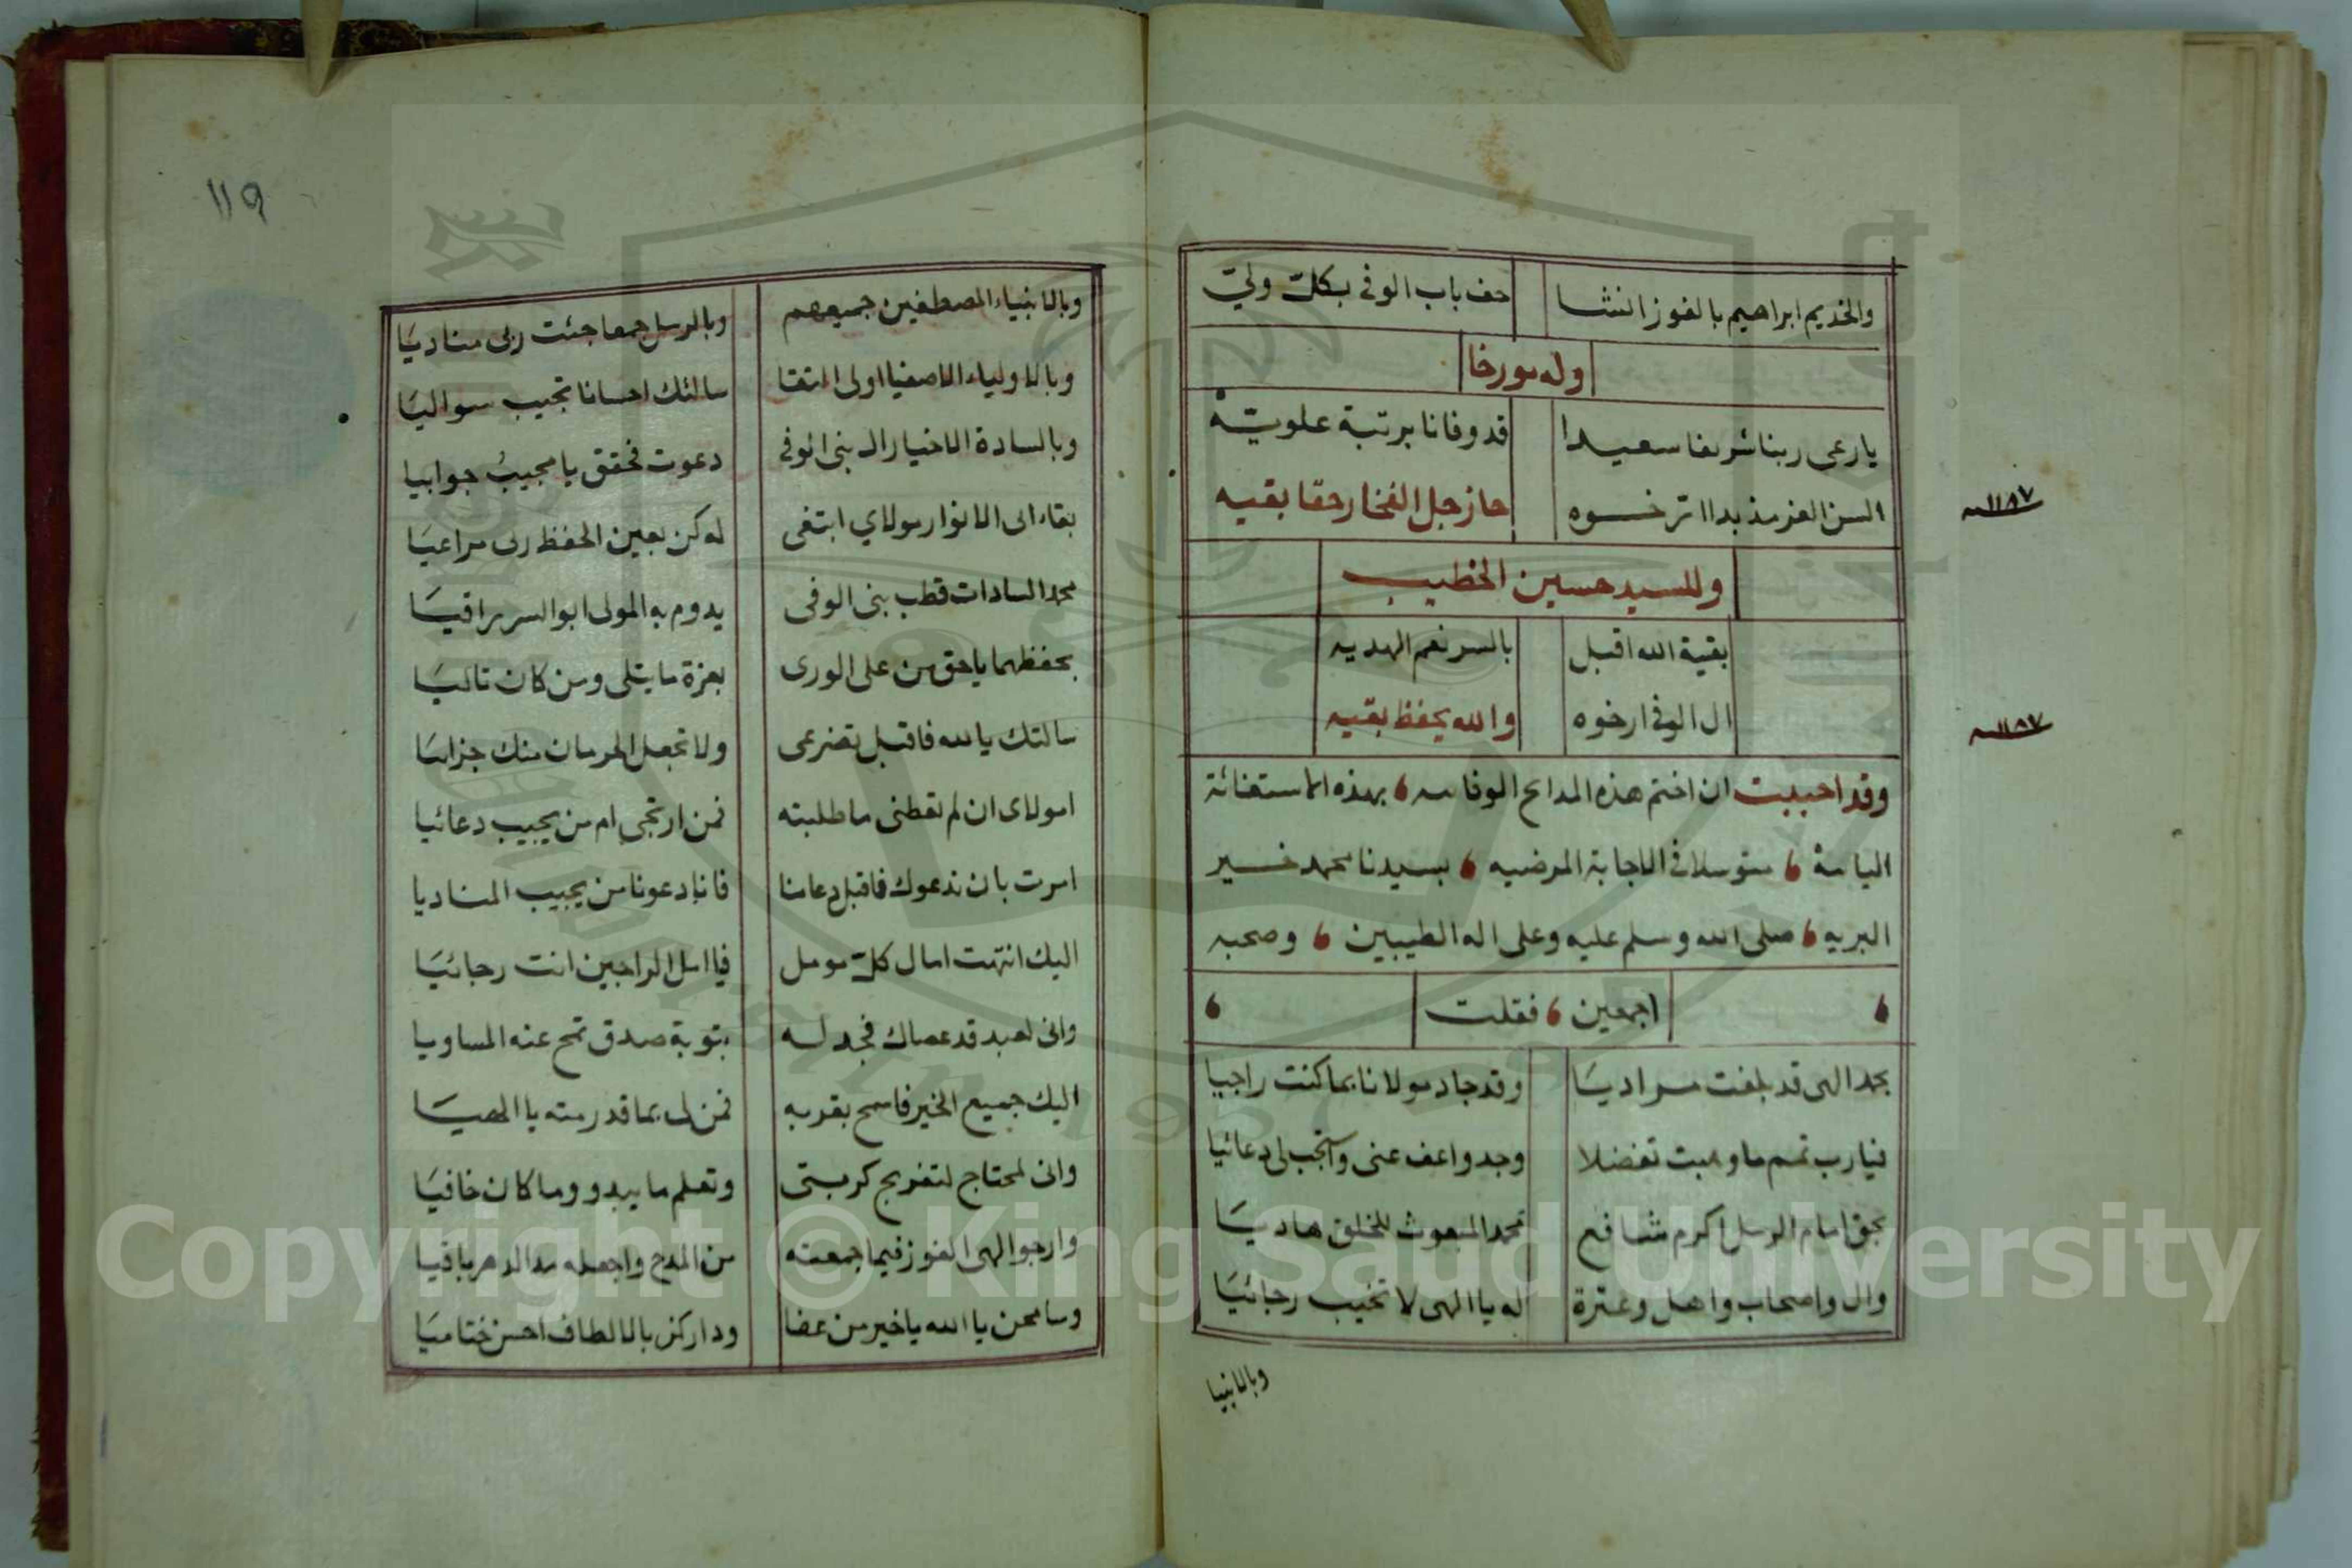 والخديم ابراهيم بالفوز انشا حف باب الوفى بكل ولي
وله مورخا
يارعى ربنا شريفا سعيدا قد وفانا برتبة علويه
السن العز مذ بدا ترخوه حاز جل الفخار حقا بقيه
١١٨٧
وللسيد حسين الخطيب
بقية الله اقبل بالسر نعم الهديه
ال الوفى ارخوه والله يحفظ بقيه
١١٨٧
وقد احببت ان اختم هذه المدايح الوفايه بهذه الاستغاثة
اليائية متوسلا فى الاجابة المرضيه بسيدنا محمد خير
البريه صلى الله وسلم عليه وعلى اله الطيبين وصحبه
اجمعين فقلت
بحمد الهى قد بلغت مراديا وقد جاد مولانا بما كنت راجيا
فيارب تمم ما وهبت تفضلا وجد واعف عنى واستجب لى دعائيا
بحق امام الرسل اكرم شافع محمد المبعوث للخلق هاديا
وال واصحاب واهل وعترة له يا الهى لا تخيب رجائيا
وبالانبيا
١١٩
وبالانبياء المصطفين جميعهم وبالرسل جمعا جئت ربى مناديا
وبالاولياء الاصفيا اولى التقا سالتك احسانا تجيب سواليا
وبالسادة الاخيار ال بنى الوفى دعوت فحقق يا مجيب جوابيا
بقاء ابى الانوار مولاي ابتغى له كن بعين الحفظ ربى مراعيا
محمد السادات قطب بنى الوفى يدوم به المولى ابوالسر راقيا
بحفظهما ياحق من على الورى بعزة ما يتلى ومن كان تاليا
سالتك يا لله فاقبل تضرعى ولا تجعل الحرمان منك جزائيا
امولاى ان لم تعطنى ما طلبته فمن ارتجى ام من يجيب دعائيا
امرت بان ندعوك فاقبل دعاءنا فانا دعونا من يجيب المناديا
اليك انتهت امال كل مومل فيا امل الراجين انت رجائيا
وانى لعبد قد عصاك فجد له بتوبة صدق تمح عنه المساويا
اليك جميع الخير فاسمح بقربه فمن لى بما قد رمته يا الهيا
وانى لمحتاج لتفريج كربتى وتعلم ما يبدو وما كان خافيا
وارجو الهى الفوز فيما جمعته من المدح واجعله مدا الدهر باقيا
وسامحن يا الله يا خير من عفا وداركن بالالطاف احسن ختاميا
Copyright © King Saud University